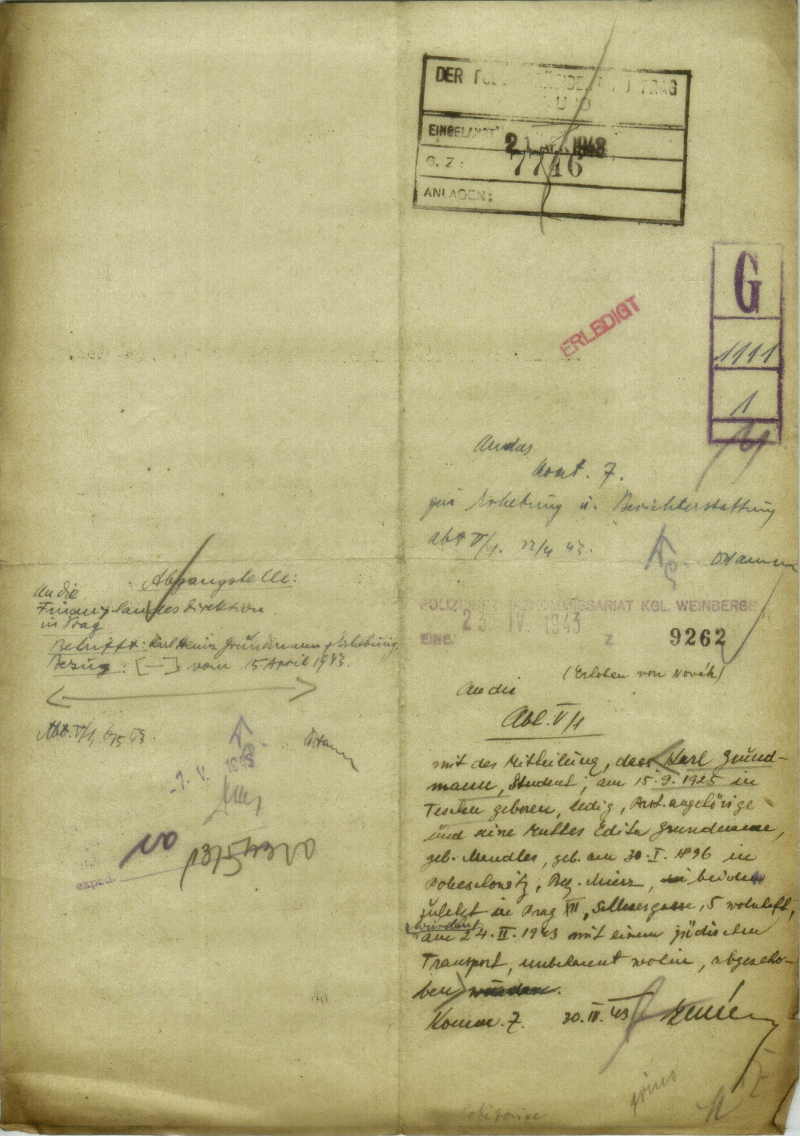 DER
PRAG
EINGELANGT
21 1943
7746
G. Z.:
ANLAGEN:
G
1111
1
ERLEDIGT
An das
Komt. 7.
zur Erhebung u. Berichterstattung
Abt V/1. 22/4 43.
POLIZEI KOMMISSARIAT KGL. WEINBERGE
EING. 23 IV. 1943 Z 9262
(Erhoben von Novák)
An die
Abt. V/1
mit der Mitteilung, dass Karl Gründ-
mann, Student, am 15.9.1925 in
Teschen geboren, ledig, Prot. angehörige
und seine Mutter Edith Grundmann,
geb. Mendler, geb. am 30.I.1896 in
Bez. beide
zuletzt in Prag XII, 5 wohnhaft,
wurden
am 24.II.1943 mit einem jüdischen
Transport, unbekannt wohin, abgescho-
ben wurden.
Komm. 7. 30.IV.43
Abgangstelle:
An die
Finanzlandesdirektion
in Prag
Betrifft: Karl Heinz Grundmann, Erhebung
Bezug: [—] vom 15 April 1943.
Abt. V/1, 6/5 43.
-7. V. 1943